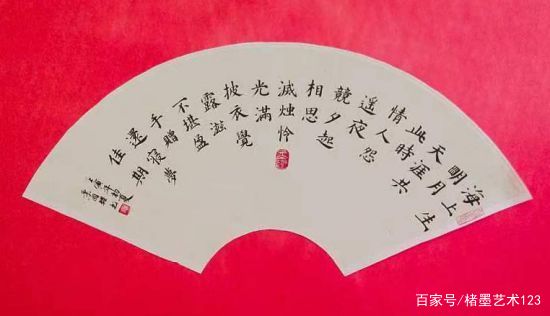 海上生
明月
天涯共
此時
情人怨
遥夜
競夕起
相思
滅烛怜
光滿
披衣覺
露滋
不堪盈
手贈
還寢夢
佳期
百家号/楮墨艺术123